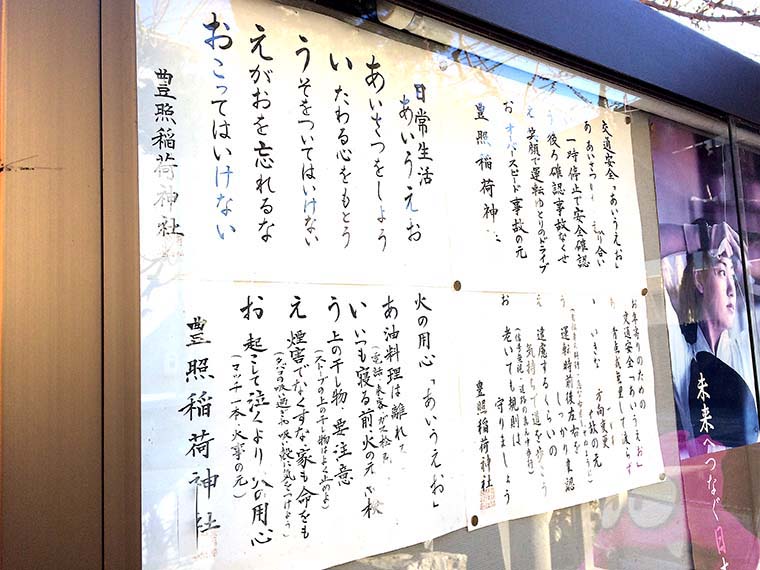 日常生活
あいうえお
あいさつをしよう
いたわる心をもとう
うそをついてはいけない
えがおを忘れるな
おこってはいけない
豊照稲荷神社
交通安全「あいうえお」
あ あいさつ
り合い
一時停止で安全確認
う 後ろ確認事故なくせ
え 笑顔で運転ゆとりのドライブ
お オーバースピード事故の元
豊照稲荷神
火の用心「あいうえお」
あ 油料理は離れ
い いつも寝る前火の元
う 上の干し物、要注意
(ストーブの上の干し物は
え 煙害でなくすな家も命も
お 起こして泣くより 火の用心
(マッチ一本、火事の元)
豊照稲荷神社
お年寄りのための
交通安全「あいうえお」
い いきな
方向変更
の元
う 運転時前後左右を
しっかり 確認
え 遠慮する くらいの
気持ちで道を歩こう
お 老いても規則は
守りましょう
豊照稲荷神社
未来へつなぐ日